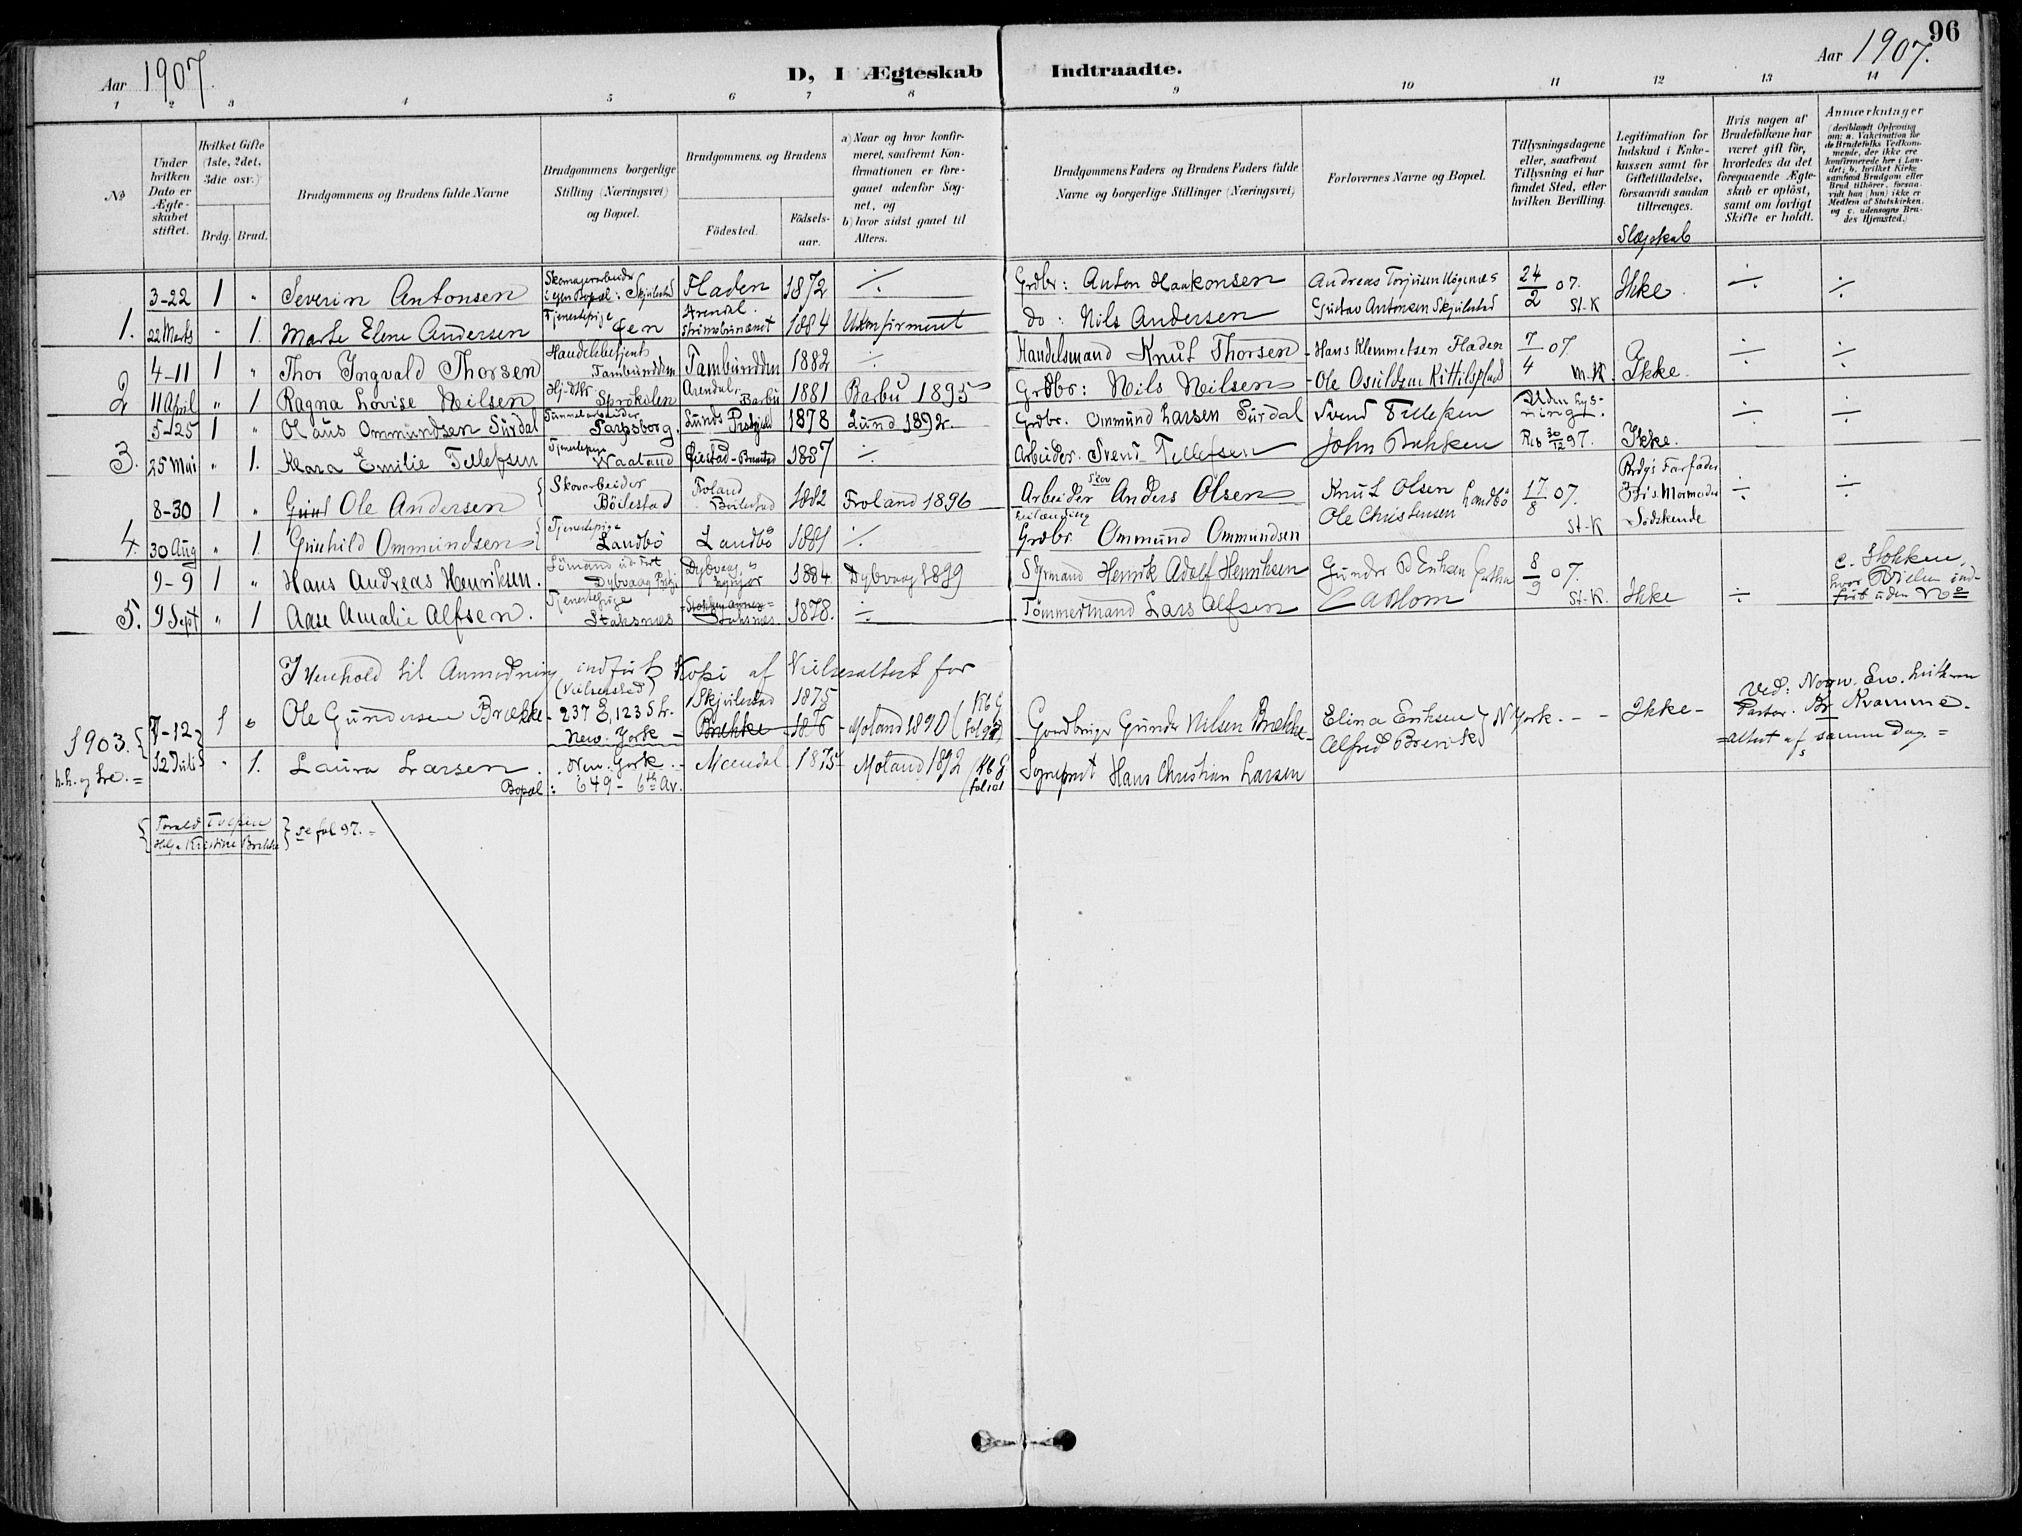 96
Aar 1907.
D, I Ægteskab Indtraadte.
Aar 1907.
1 2 3 4 5 6 7 8 9 10 11 12 13 14
No
Under hvilken Dato er Ægteskabet stiftet.
Hvilket Gifte (1ste, 2det, 3die osv.)
Brdg. Brud.
Brudgommens og Brudens fulde Navne
Brudgommens borgerlige Stilling (Næringsvei) og Bopæl.
Brudgommens og Brudens
Födested. Födselsaar.
a) Naar og hvor konfirmeret, saafremt Konfirmationen er foregaaet udenfor Sognet, og
b) hvor sidst gaaet til Alters.
Brudgommens Faders og Brudens Faders fulde Navne og borgerlige Stillinger (Næringsvei)
Forlovernes Navne og Bopæl.
Tillysningsdagene eller, saafremt Tillysning ei har fundet Sted, efter hvilken Bevilling.
Legitimation for Indskud i Enkekassen samt for Giftetilladelse, forsaavidt saadan tiltrænges.
Slægskab
Hvis nogen af Brudefolkene har været gift för, hvorledes da det foregaaende Ægteskab er oplöst, samt om lovligt Skifte er holdt.
Anmærkninger
(deriblandt Oplysning om: a. Vakcination for de Brudefolks Vedkommende, der ikke ere konfirmerede her i Landet; b. hvilket Kirkesamfund Brudgom eller Brud tilhörer, forsaavidt han (hun) ikke er Medlem af Statskirken, og c. udensogns Brudes Hjemsted.)
3-22 1 " Severin Antonsen Skomagerarbeider i egen Bopæl: Skjulestad Fladen 1872 ÷ Grdbr: Anton Haakonsen Andreas Torjusen Högenæs 24/2 07. Ikke. ÷ ÷
1. 22 Marts - 1. Marte Elene Andersen Tjenestepige Öen Arendal. 1884 Ukonfirmeret do: Nils Andersen Gustav Antonsen Skjulestad St. K
4-11 1 " Thor Ingvald Thorsen Handelsbetjent 1882 ÷ Handelsmand Knut Thorsen - Hans Klemmetsen Fladen 7/4 07. ÷ ÷
2 11 April " 1 Ragna Lovise Nilsen Arendal, Barbu 1881 Barbu 1895 Grdbr: Nils Nilsen M.K. Ikke.
5-25 1 " Olaus Ommundsen Surdal Tarpsborg Lunds Prstgjeld 1878 Lund 1892. Grdbr. Ommund Larsen Surdal Svend Tellefsen Uden Lysning. ÷ ÷
3. 25 Mai " 1. Klara Emilie Tellefsen Tjenestepige Waaland 1887 ÷ Arbeider. Svend Tellefsen John Bakken 30/12 97. Ikke.
8-30 1 " Gund Ole Andersen Skovarbeider Böilestad Froland Böilestad 1882 Froland 1896 Skov Arbeider Anders Olsen Knut Olsen Landbö 17/8 07. Brdg's Farfader Br's Mormoder Södskende ÷ ÷
4. 30 Aug " 1. Gunhild Ommundsen Tjenestepige Landbö Landbö ÷ Grdbr Ommund Ommundsen Ole Christensen St-K
9-9 1 " Hans Andreas Henriksen. Sömand Dybvaag 1884 Dybvaag 1899 Styrmand Henrik Adolf Henriksen 8/9 07. c. Stokken, hvor Vielsen indfört uden No
5. 9 Sept " 1 Aase Amalie Alfsen. Tjenestepige Staksnæs 1878. ÷ Tömmermand Lars Alfsen St-K. Ikke ÷
I Henhold til Anmodning indfört Kopi af Vielsesattest for
1903. 7-12 1 Ole Gundersen Brække (Vielsessted) 237 E, 123 Str. New York Skjulestad Brekke 1875 1876 Moland 1890 Gaardbruger Gunder Nilsen Brække Elina Eriksen Alfred Brevik N York. - - Ikke - Ved: Norw. Ev. Luthran Pastor. Br Kvamme. = attest af samme Dag =
12 Juli " 1. Laura Larsen New York. Bopæl: 649 - 6th Av. 1875 Moland 1892 Sogneprest Hans Christian Larsen
Helga Kristine Brekke } se fol 97. =